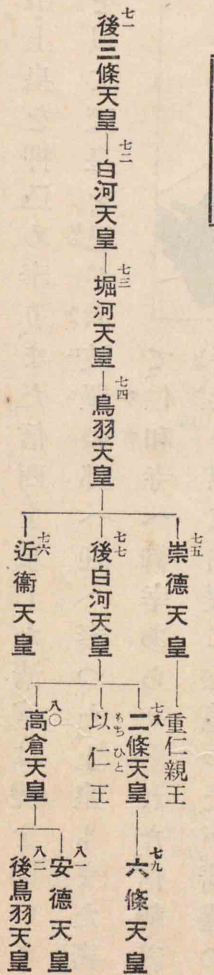 七一
後三條天皇
七二
白河天皇
七三
堀河天皇
七四
鳥羽天皇
七五
崇德天皇
重仁親王
七七
後白河天皇
七八
二條天皇
七九
六條天皇
以仁王
もち ひと
八〇
高倉天皇
八一
安德天皇
八二
後鳥羽天皇
七六
近衞天皇